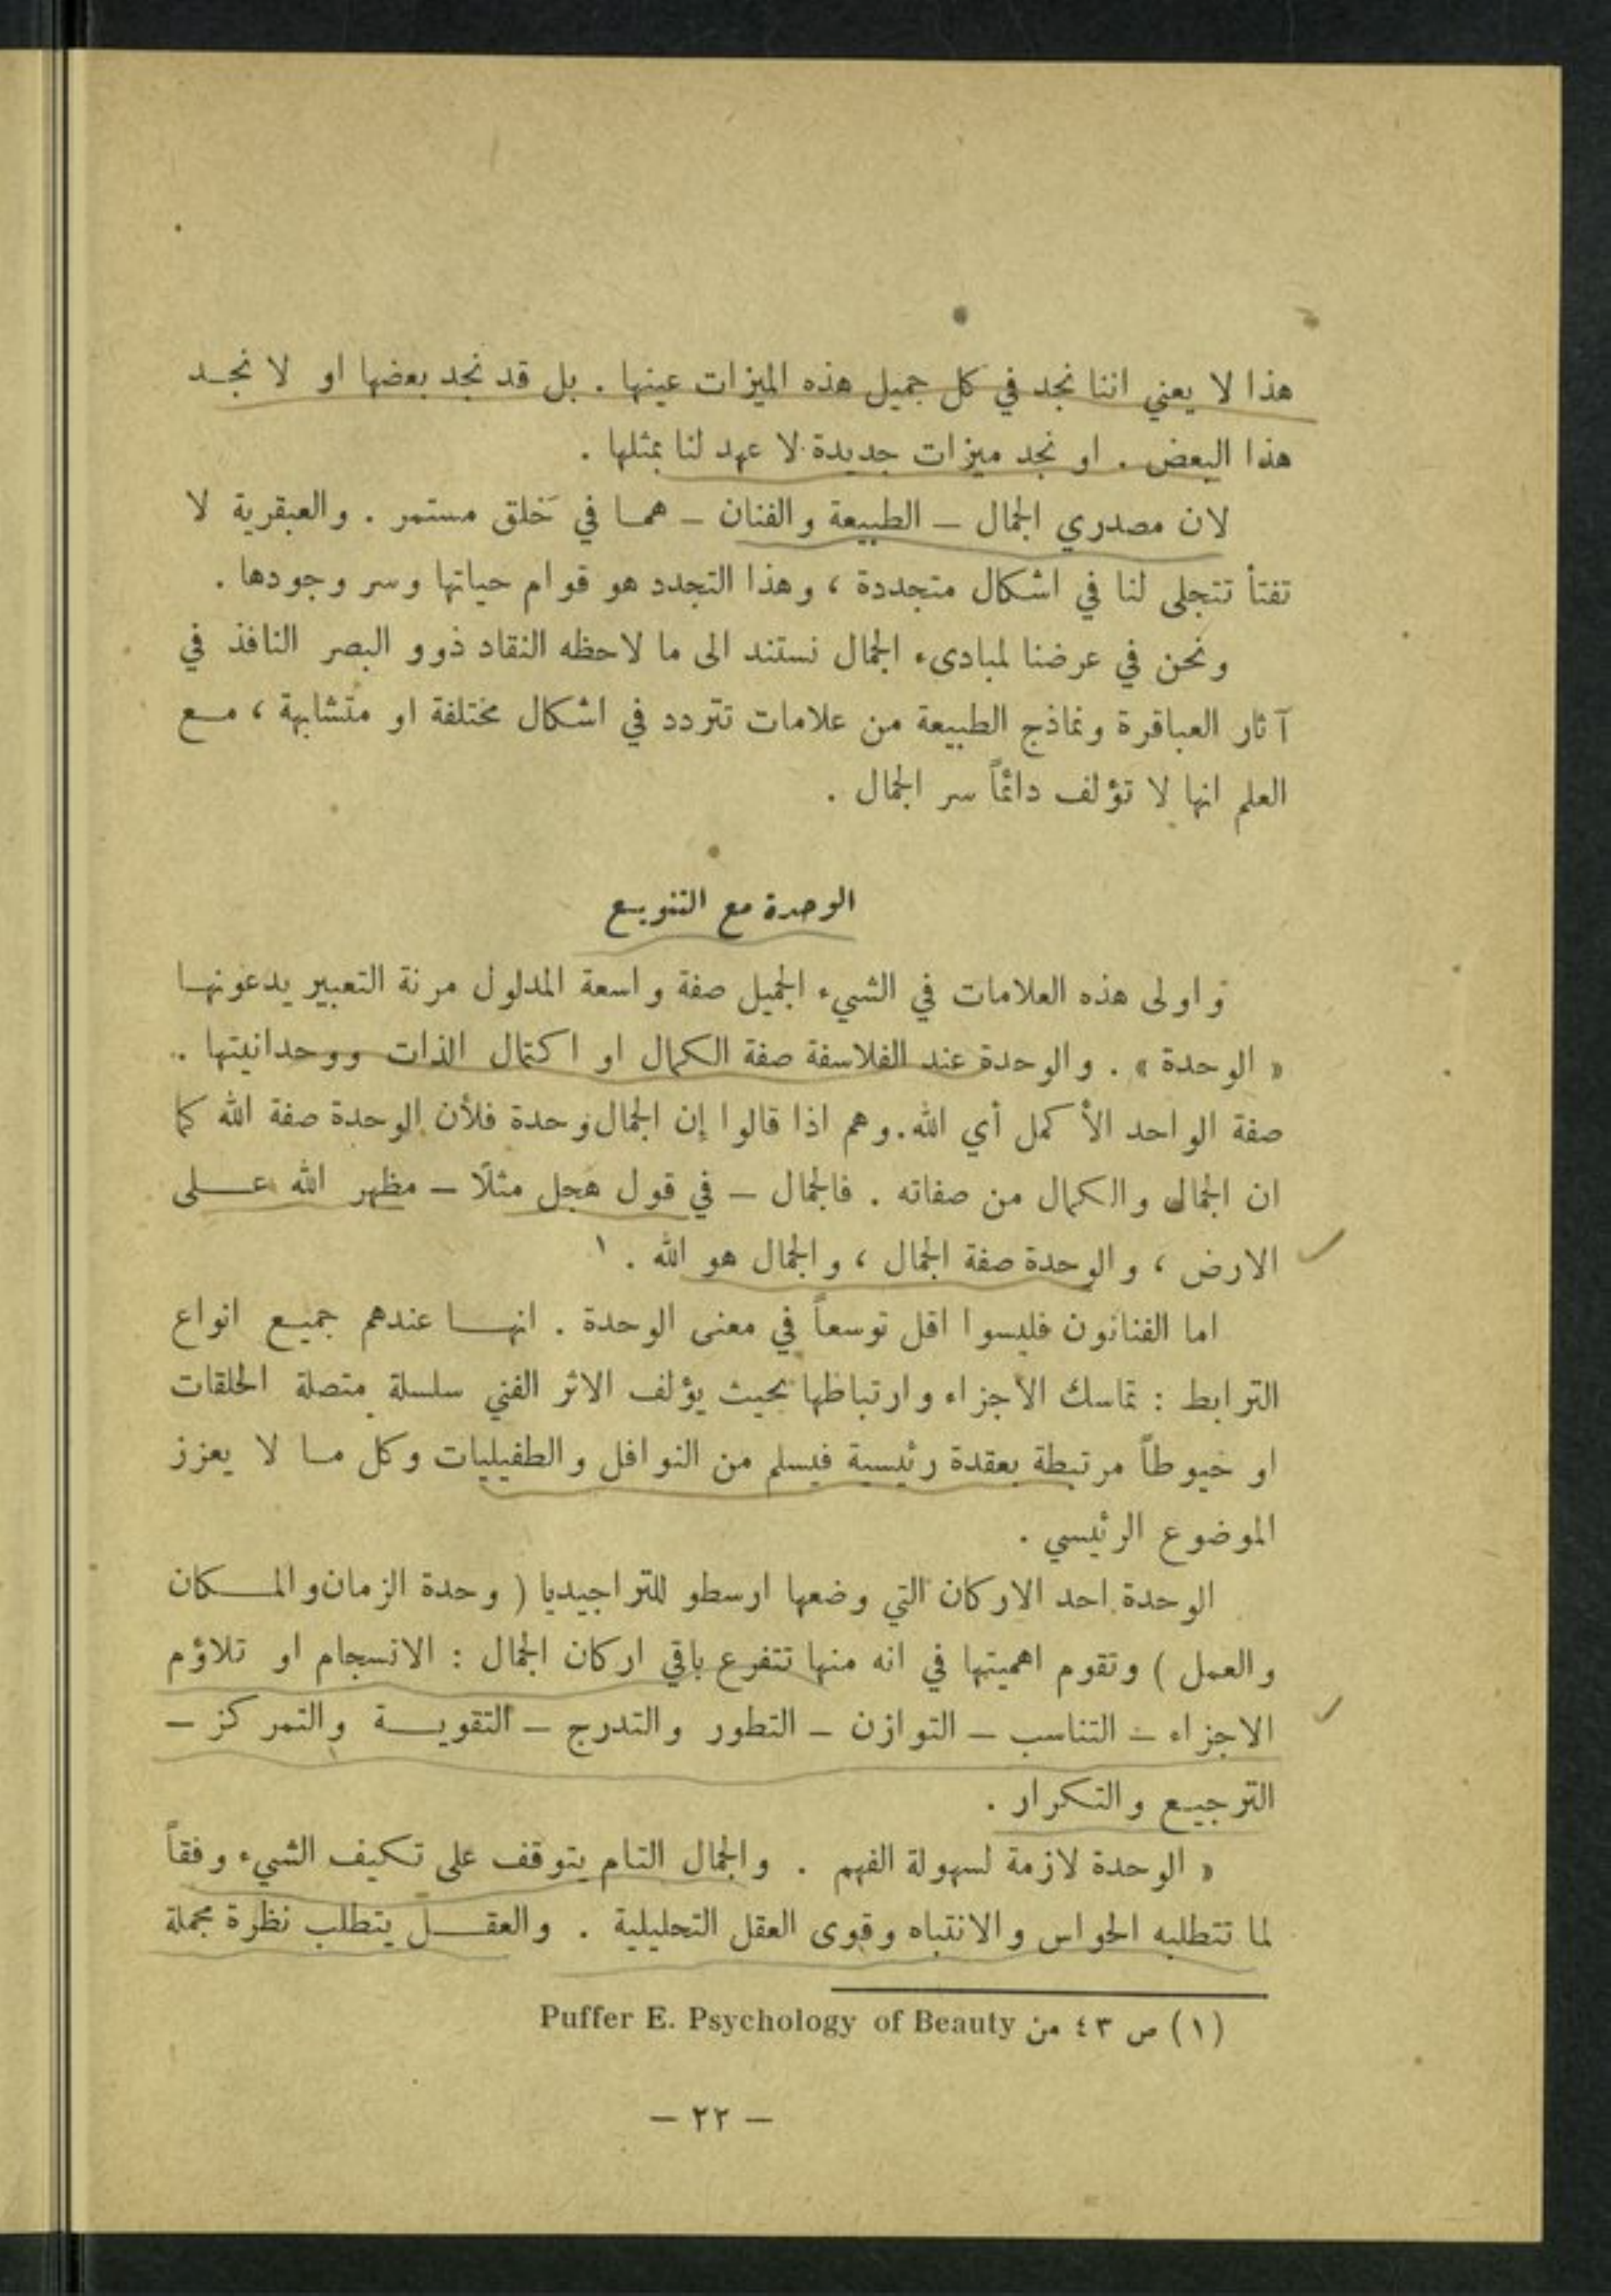 هذا لا يعني اننا نجد في كل جميل هذه الميزات عينها . بل قد نجد بعضها او لا نجد
هذا البعض . او نجد ميزات جديدة لا عهد لنا بمثلها .
لان مصدري الجمال – الطبيعة والفنان – هما في خلق مستمر . والعبقرية لا
تفتأ تتجلى لنا في اشكال متجددة ، وهذا التجدد هو قوام حياتها وسر وجودها .
ونحن في عرضنا لمبادىء الجمال نستند الى ما لاحظه النقاد ذوو البصر النافذ في
آثار العباقرة ونماذج الطبيعة من علامات تتردد في اشكال مختلفة او متشابهة ، مع
العلم انها لا تؤلف دائماً سر الجمال .
الوحدة مع التنويع
واولى هذه العلامات في الشيء الجميل صفة واسعة المدلول مرنة التعبير يدعونها
« الوحدة » . والوحدة عند الفلاسفة صفة الكمال او اكتمال الذات ووحدانيتها ..
صفة الواحد الأكمل أي الله . وهم اذا قالوا إن الجمال وحدة فلأن الوحدة صفة الله كما
ان الجمال والكمال من صفاته . فالجمال – في قول هجل مثلًا – مظهر الله على
الارض ، والوحدة صفة الجمال ، والجمال هو الله . ١
اما الفنانون فليسوا اقل توسعاً في معنى الوحدة . انها عندهم جميع انواع
الترابط : تماسك الأجزاء وارتباطها بحيث يؤلف الاثر الفني سلسلة متصلة الحلقات
او خيوطاً مرتبطة بعقدة رئيسية فيسلم من النوافل والطفيليات وكل ما لا يعزز
الموضوع الرئيسي .
الوحدة احد الاركان التي وضعها ارسطو للتراجيديا ( وحدة الزمان والمكان
والعمل ) وتقوم اهميتها في انه منها تتفرع باقي اركان الجمال : الانسجام او تلاؤم
الاجزاء – التناسب – التوازن – التطور والتدرج – التقوية والتمركز –
الترجيع والتكرار .
« الوحدة لازمة لسهولة الفهم . والجمال التام يتوقف على تكيف الشيء وفقاً
لما تتطلبه الحواس والانتباه وقوى العقل التحليلية . والعقل يتطلب نظرة مجملة
(١) ص ٤٣ من Puffer E. Psychology of Beauty
– ٢٢ –